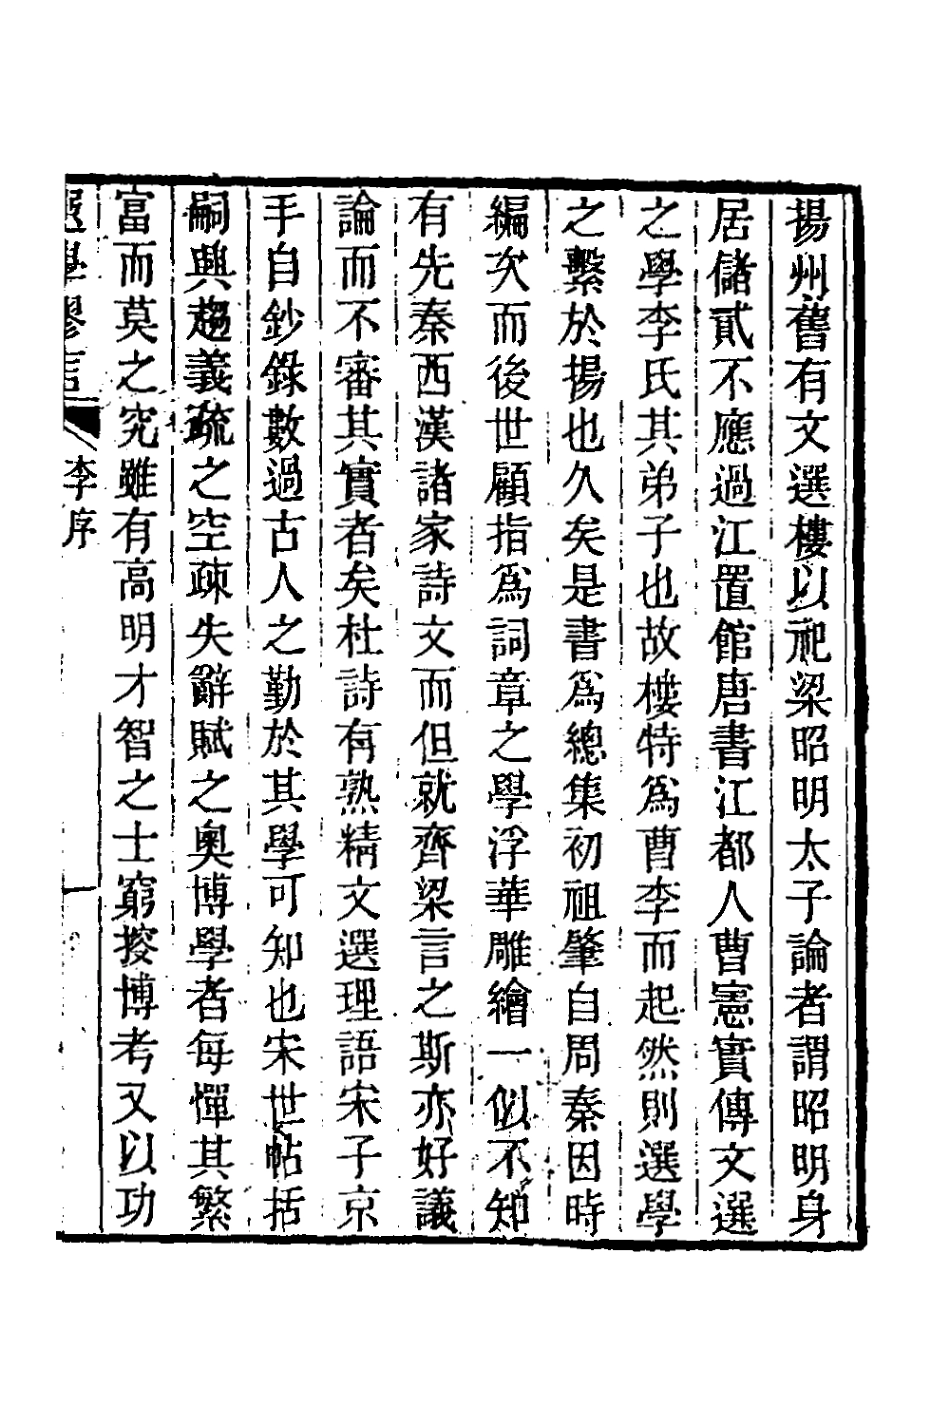 揚州舊有文選樓以祀梁昭明太子論者謂昭明身
居儲貳不應過江置館唐書江都人曹憲實傳文選
之學李氏其弟子也故樓特爲曹李而起然則選學
之繫於揚也久矣是書爲總集初祖肇自周秦因時
編次而後世顧指爲詞章之學浮華雕繪一似不知
有先秦西漢諸家詩文而但就齊梁言之斯亦好議
論而不審其實者矣杜詩有熟精文選理語宋子京
手自鈔錄數過古人之勤於其學可知也宋世帖括
嗣興趨義疏之空疎失辭賦之奧博學者每憚其繁
富而莫之究雖有高明才智之士窮搜博考又以功
選學膠言
李序
一